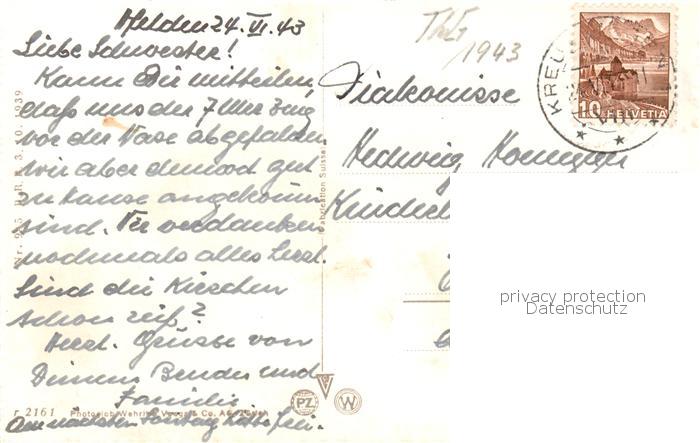 24. VI. 43
Liebe Schwester!
Kann Dir mitteilen,
daß uns der 7 Uhr Zug
vor der Nase abgefahren
wir aber dennoch gut
zu Hause angekomm
sind. Wir verdanken
nochmals alles herzl.
Sind die Kirschen
schon reif?
Herzl. Grüsse von
Deinem Bruder und
Familie
Am nächsten Sonntag
ThG
1943
Diakonisse
Hedwig Honegger
KREU
10 HELVETIA
privacy protection
Datenschutz
Fabrication Suisse
PZ
W
r 2161 Photoglob-Wehrli & Vouga & Co. AG. Zürich